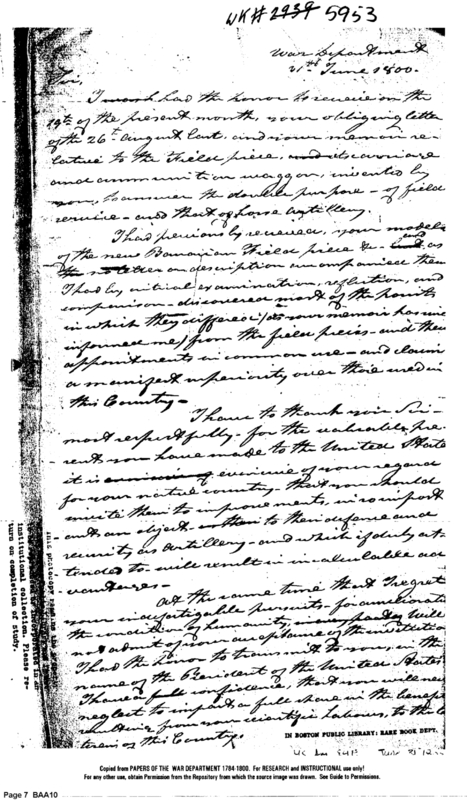 WK# 2939 5953
War Department
21st June 1800.
Sir,
I had the honor to receive on the
19th of the present month, your obliging letter
of the 26th August last, and your memoir re-
lative to the Field piece, and its carriage
and ammunition waggon, invented by
you, to answer the double purpose – of field
service – and that of horse artillery.
I had previously received, your models
of the new Bavarian Field piece &c – and, as
no letter or description accompanied them
I had by critical examination, reflection, and
comparison – discovered most of the points
in which they differed (as your memoir has since
informed me) from the field pieces – and their
appointments in common use – and claim
a manifest superiority over those used in
this Country –
I have to thank you Sir –
most respectfully – for the valuable pre-
sent you have made to the United States
it is evincive of your regard
for your native country, that you should
invite them to improvements, in so import-
ant an object to their defence and
security as artillery – and which if duly at-
tended to – will result in incalculable ad-
vantages –
At the same time that I regret
your indefatigable pursuits, for ameliorating
the condition of humanity, will
not admit of your acceptance of the invitation
I had the honor to transmit to you, in the
name of the President of the United States
I have a full confidence, that you will never
neglect to impart a full share in the benefits
resulting from your scientific labours, to the
of this Country.
institutional collection. Please re-
turn on completion of study.
IN BOSTON PUBLIC LIBRARY: RARE BOOK DEPT.
Copied from PAPERS OF THE WAR DEPARTMENT 1784-1800. For RESEARCH and INSTRUCTIONAL use only!
For any other use, obtain Permission from the Repository from which the source image was drawn. See Guide to Permissions.
Page 7 BAA10